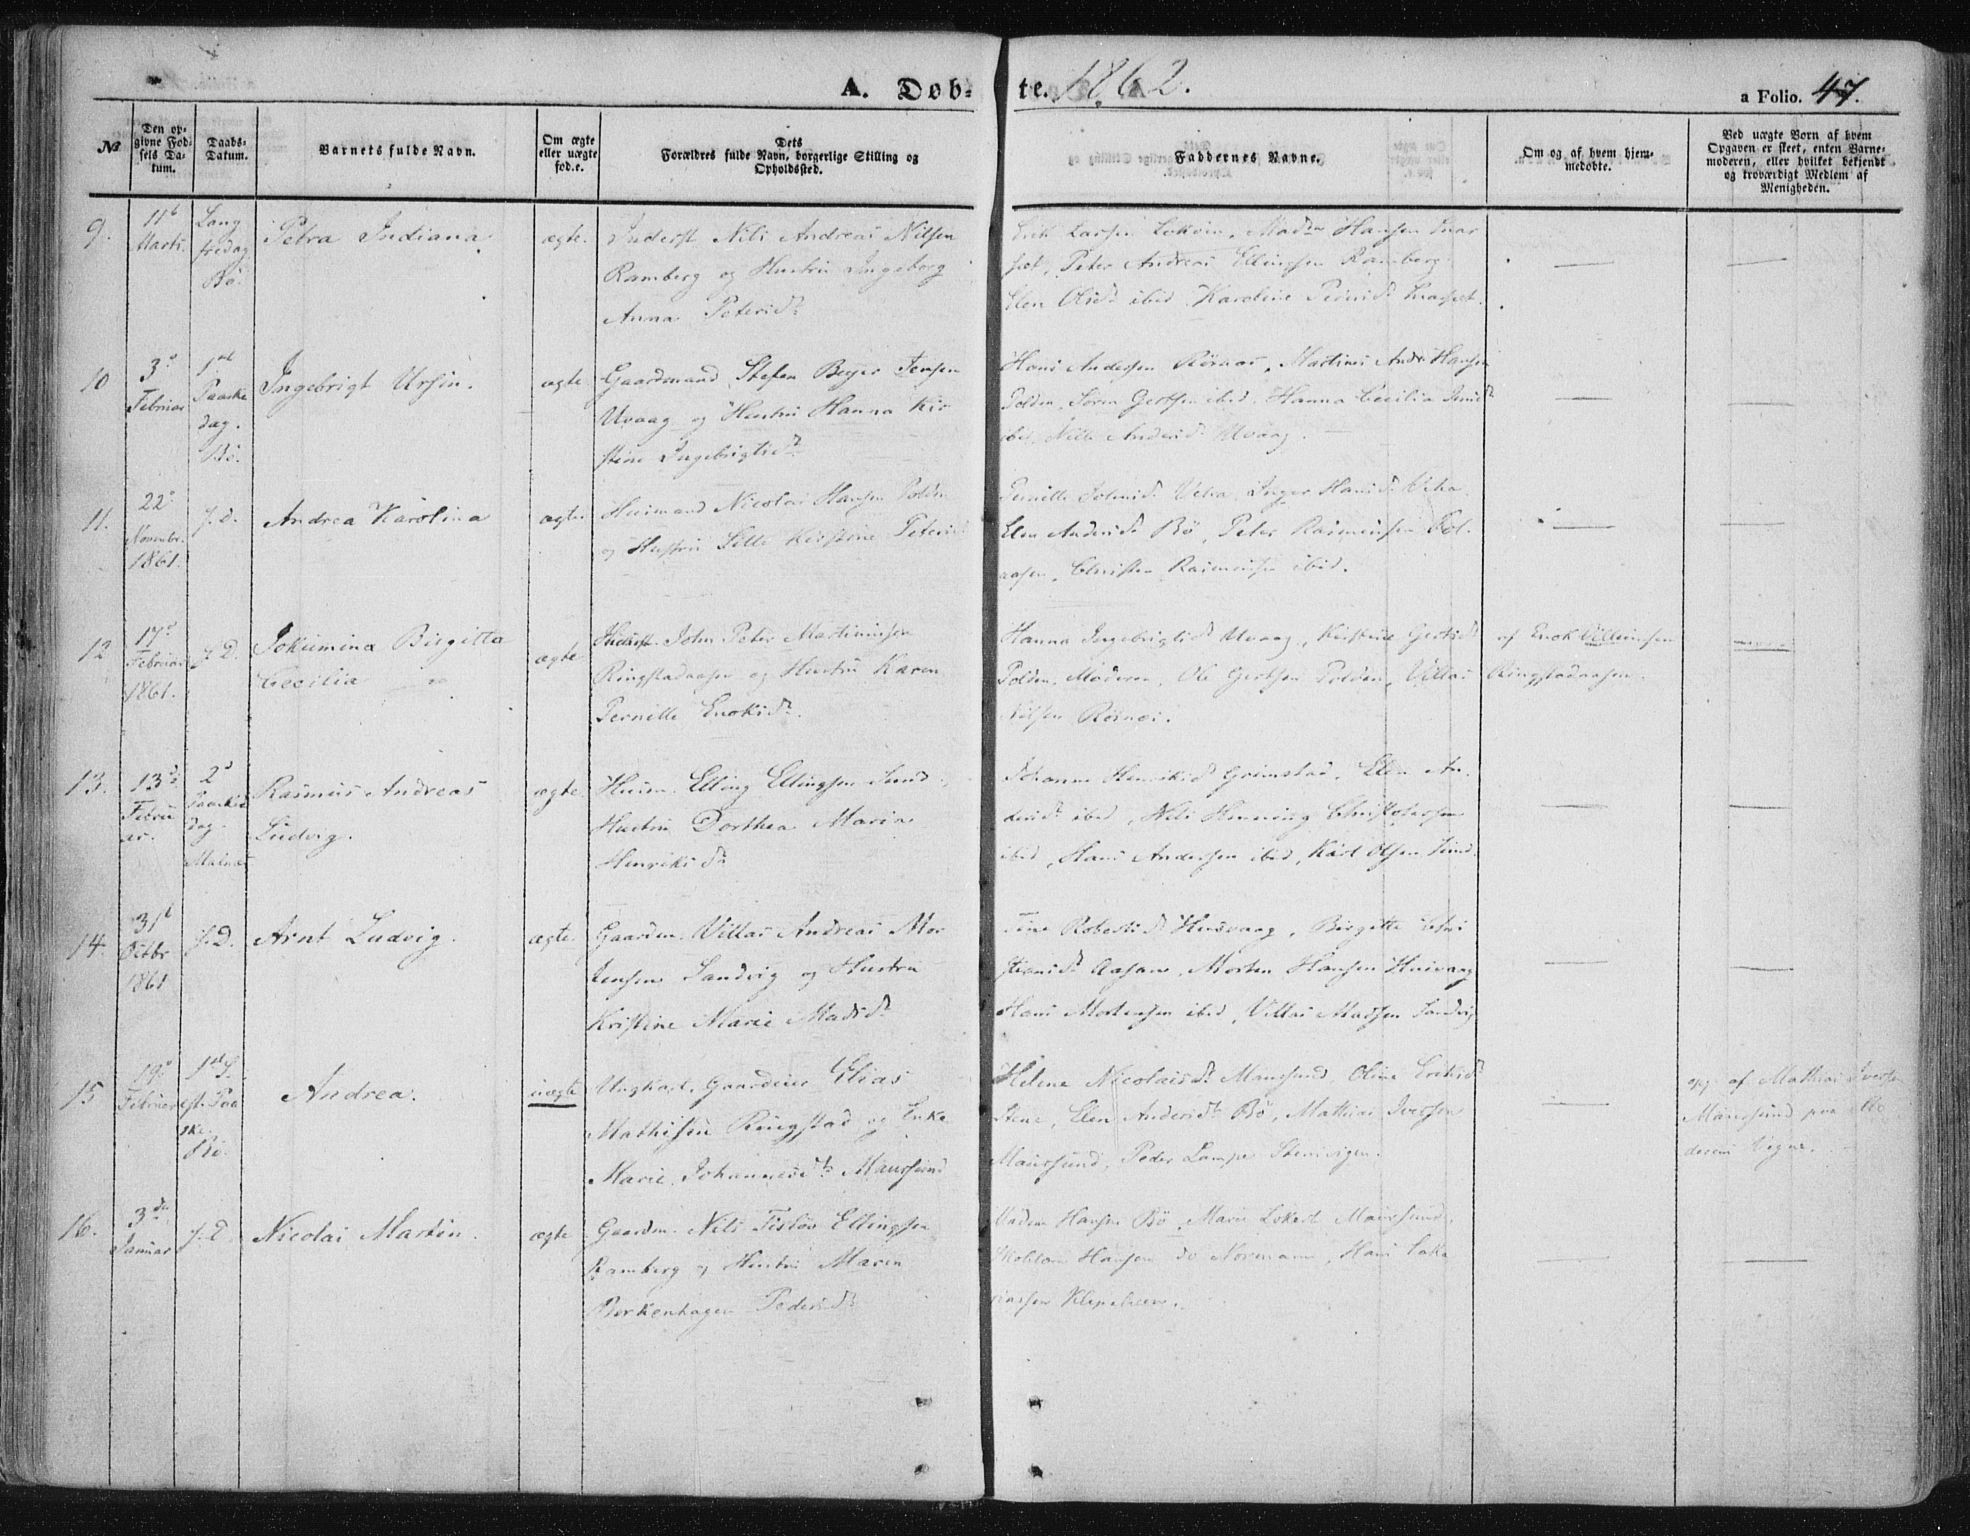 A. Døb-te. 1862.
a Folio. 47.
№
Den opgivne Fødsels Datum.
Daabs-Datum.
Barnets fulde Navn.
Om ægte eller uægte fød.e.
Dets Forældres fulde Navn, borgerlige Stilling og Opholdssted.
Faddernes Navne.
Om og af hvem hjemmedøbte.
Ved uægte Børn af hvem Opgaven er skeet, enten Barnemoderen, eller hvilket bekjendt og troværdigt Medlem af Menigheden.
9.
11t Marts
Langfredag Bø.
Petra Indiana
ægte.
Inderst Nils Andreas Nilsen
Ramberg og Hustru Ingeborg
Anna Petersdr
Erik Larsen Lokvin, Madm Hansen
Peter Andreas Ellingsen Ramberg
Elen Olsdr ibid Karoline
10
3d Februar
1ste Paaskedag. Bø.
Ingebrigt Ursin.
ægte
Gaardmand Stefen Beyer Jensen
Uvaag og Hustru Hanna Kir
stine Ingebrigtsdr
Hans Andersen Rösnæs, Martinus Andr. Hansen
Polden, Sören Gertsen ibid. Hanna Cecilia Jensdr
ibid, Nille Andersdr Uvaag.
11.
22d Novembr. 1861.
s. D.
Andrea Karolina
ægte.
Huusmand Nicolai Hansen Polden
og Hustru Sille Kirstine Petersdr
Pernille Johnsdr Veha, Inger Hansdr Veha
Elen Andersdr Bø, Peter Rasmussen Pol
aasen, Christen Rasmussen ibid.
12
17d Februar 1861.
s. D.
Jokumina Birgitta
Cecilia
ægte
Inderst John Peter Martinussen
Ringstadaasen og Hustru Karen
Pernille Enoksdr.
Hanna Ingebrigtsdr Uvaag, Kirstine Gertsdr
Polden, Moderen, Ole Gertsen Polden, Villas
Nilsen Rösnæs.
af Enok Villumsen
Ringstadaasen.
13.
13de Februar.
2d Paaskedag. Malnæs
Rasmus Andreas
Ludvig.
ægte.
Huusm. Elling Ellingsen Sund,
Hustru Dorthea Maria
Henriksdr
Johanna Henriksdr Grimstad, Elen An
dersdr ibid, Nils Henning Christofersen
ibid, Hans Andersen ibid, Karl Olsen Sund.
14.
31t Octbr 1861
s. D.
Arnt Ludvig.
ægte.
Gaardm. Villas Andreas Mor
tensen Sandvig og Hustru
Kristine Marie Madsdr
Tine Robertsdr Husvaag, Birgitte Chri
stensdr Aasan, Morten Hansen Husvaag
Hans Mortensen ibid, Villas Madsen Sandvig
15
19d Februar
1st S. eft. Paaske. Bø.
Andrea.
uægte
Ungkarl, Gaardeier Elias
Mathisen Ringstad og Enke
Marie Johannesdtr Maursund
Helene Nicolaisdr Maursund, Oline Eriksdr
Stene, Elen Andersdtr Bø, Mathias Iversen
Maursund, Peder Lampe Steinvigen.
opg af Mathias Iversen
Maursund paa Mo
derens Vegne.
16.
3die Januar
s. D
Nicolai Martin.
ægte
Gaardm. Nils Ellingsen
Ramberg og Hustru Maren
Berkenhagen Pedersdr
Madam Hansen Bø, Marie Lokert Maursund,
Hansen do Normann, Hans Zaka
riassen